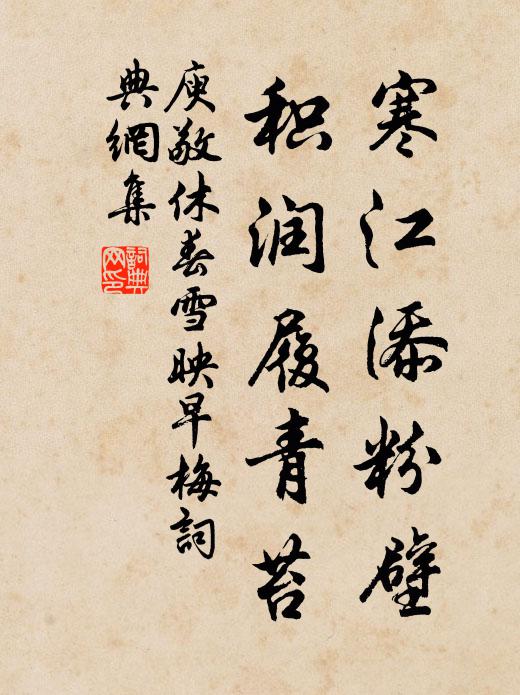 寒江添粉壁
积润履青苔
庾敬休春雪映早梅詞
典網集
詞典
网印